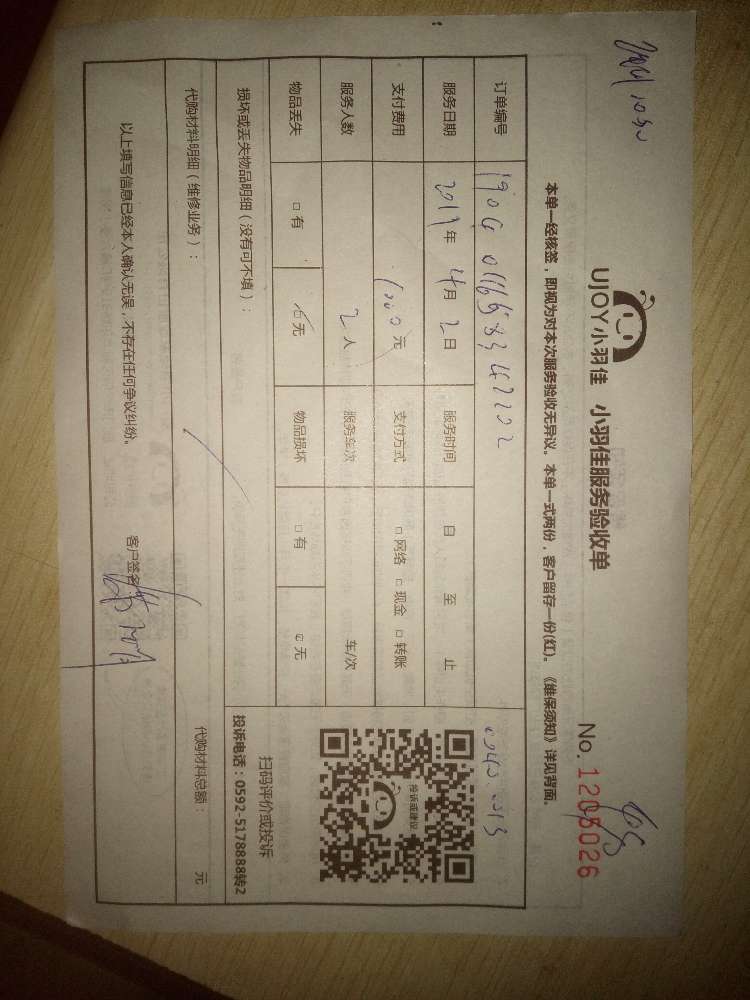 UJOY小羽佳 小羽佳服务验收单
No. 1205026
本单一经核签，即视为对本次服务验收无异议。本单一式两份，客户留存一份(红)。《维保须知》详见背面。
订单编号
服务日期 2019年 4月 2日 服务时间 自 至 止
支付费用 元 支付方式 □网络 □现金 □转账
服务人数 2 人 服务车次 车/次
物品丢失 □有 □无 物品损坏 □有 □无
投诉或建议
扫码评价或投诉
投诉电话：0592-5178888转2
损坏或丢失物品明细（没有可不填）：
代购材料明细（维修业务）： 代购材料总额： 元
以上填写信息已经本人确认无误，不存在任何争议纠纷。 客户签名